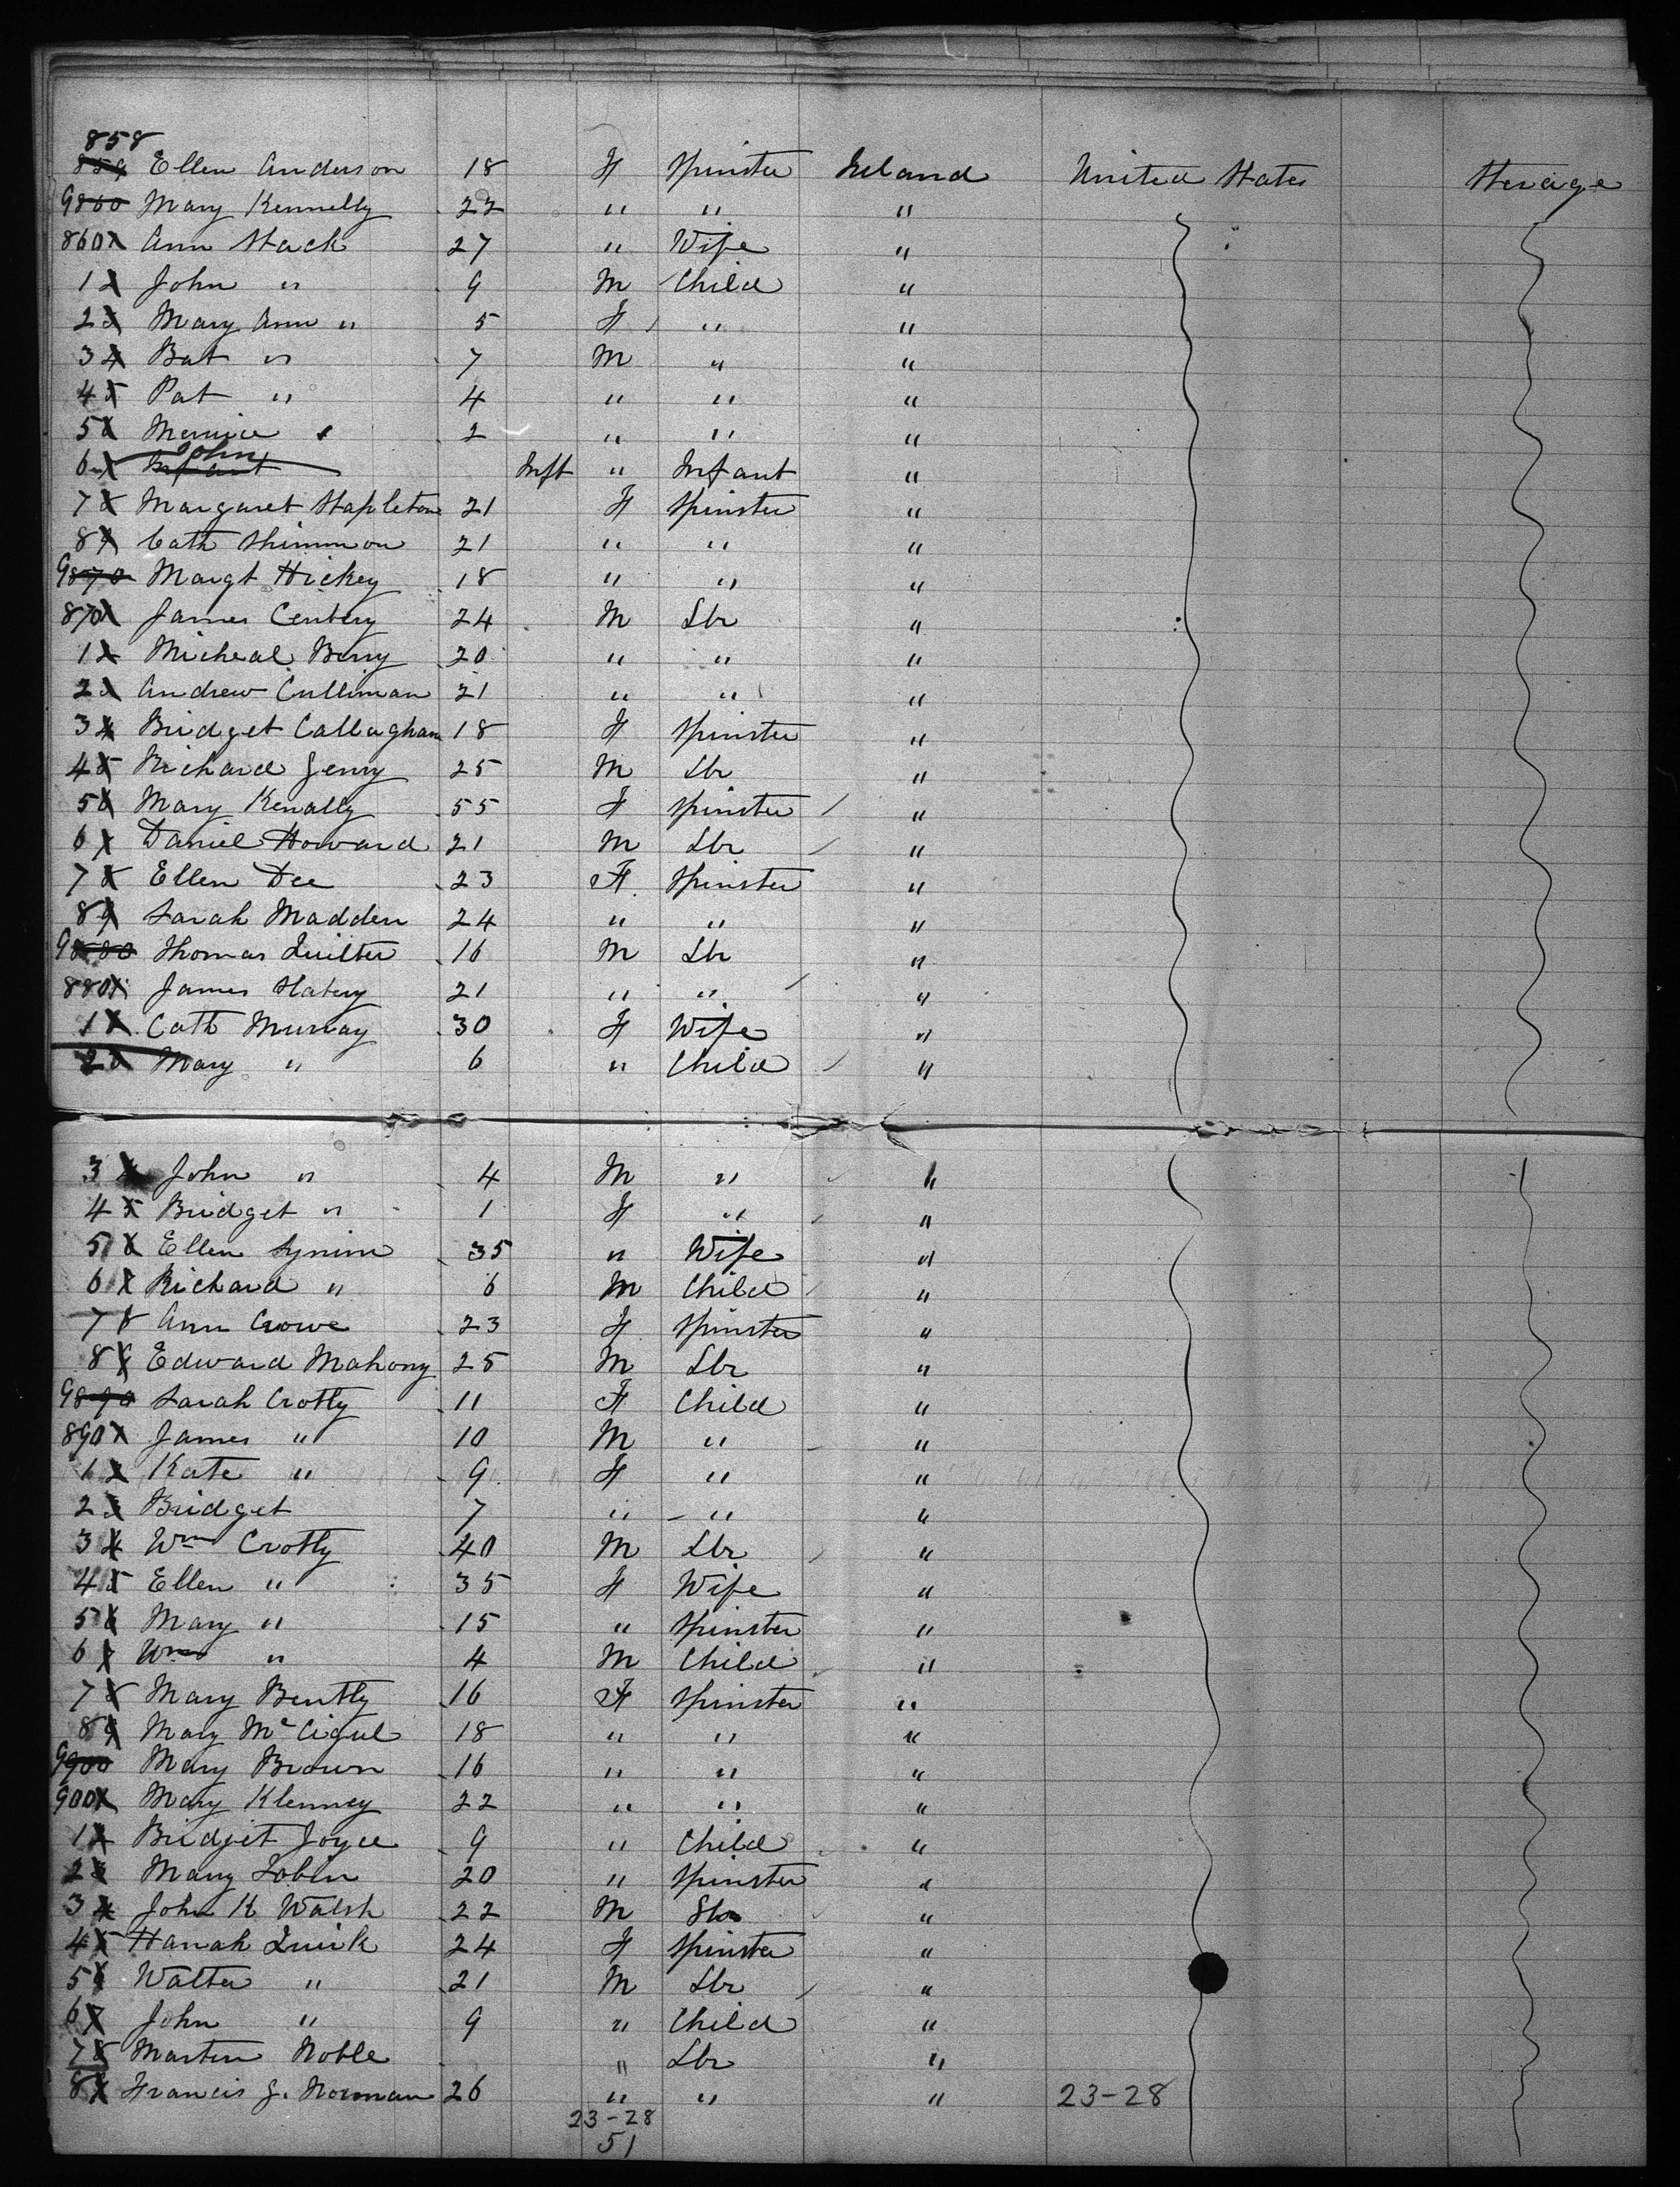 858
859 Ellen Anderson 18 F Spinster Ireland United States Sterage
9860 Mary Kennelly 22 " " "
860 Ann Stack 27 " Wife "
1 John " 9 M Child "
2 Mary Ann " 5 F " "
3 Bat " 7 M " "
4 Pat " 4 " " "
5 2 " " "
John
6 Infant Inft " Infant "
7 Margaret Stapleton 21 F Spinster "
8 Cath Shimmon 21 " " "
9870 Margt Hickey 18 " " "
870 James 24 M Lbr "
1 Micheal Barry 20 " " "
2 Andrew Cullinan 21 " " "
3 Bridget Callaghan 18 F Spinster "
4 Richard 25 M Lbr "
5 Mary Kenally 55 F Spinster "
6 Daniel Howard 21 M Lbr "
7 Ellen Dee 23 F Spinster "
8 Sarah Madden 24 " " "
9880 Thomas Quilter 16 M Lbr "
880 James Slatery 21 " " "
1 Cath Murray 30 F Wife "
2 Mary " 6 " Child "
3 John " 4 M " "
4 Bridget " 1 F " "
5 Ellen 35 " Wife "
6 Richard " 6 M Child "
7 Ann Crowe 23 F Spinster "
8 Edward Mahony 25 M Lbr "
9890 Sarah Crotty 11 F Child "
890 James " 10 M " "
1 Kate " 9 F " "
2 Bridget 7 " " "
3 Wm Crotty 40 M Lbr "
4 Ellen " 35 F Wife "
5 Mary " 15 " Spinster "
6 Wm " 4 M Child "
7 Mary Bently 16 F Spinster "
8 Mary 18 " " "
9900 Mary Brown 16 " " "
900 Mary Klenney 22 " " "
1 Bridget Joyce 9 " Child "
2 Mary Tobin 20 " Spinster "
3 John K Walsh 22 M "
4 Hanah Quirk 24 F Spinster "
5 Walter " 21 M Lbr "
6 John " 9 " Child "
7 Martin Noble " Lbr "
8 Francis J. Norman 26 " " " 23-28
23-28
51